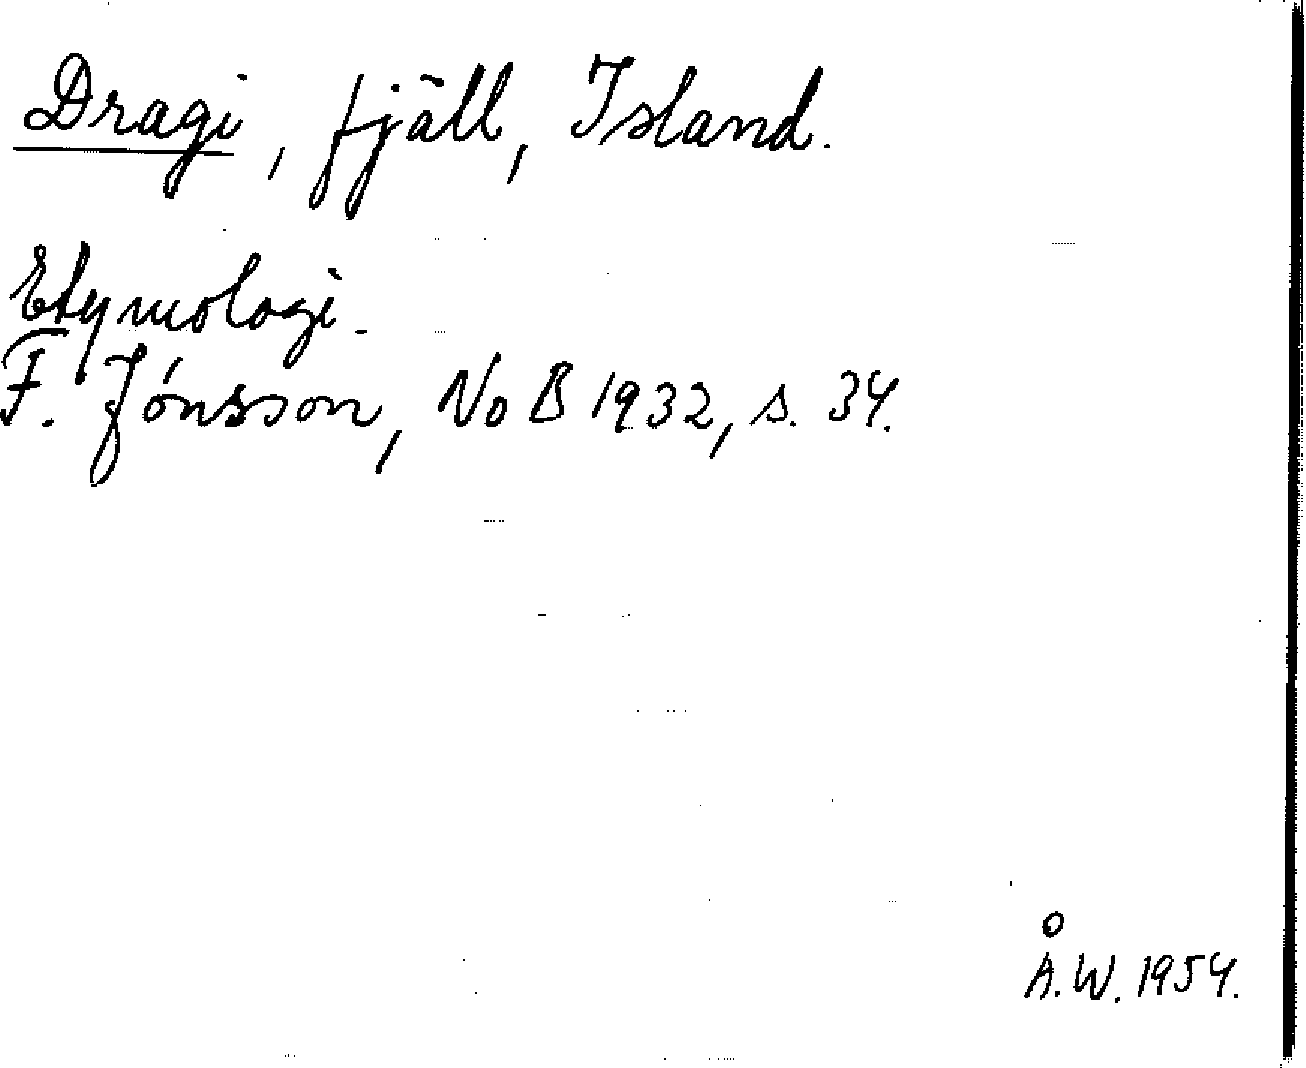 Dragi, fjäll, Island.
Etymologi.
F. Jónsson, NoB 1932, s. 34.
Å.W. 1954.